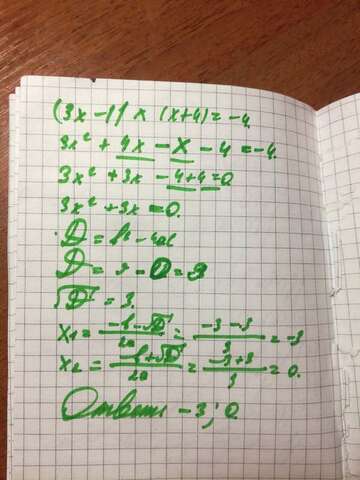 (3x-1) × (x+4) = -4
3x² + 4x - x - 4 = -4.
3x² + 3x - 4+4=0
3x² + 3x = 0.
D = b² - 4ac
D = 9 - 0 = 9
√D = 3.
x₁ = (-b-√D)/2a = (-3-3)/3 = -3
x₂ = (-b+√D)/2a = (-3+3)/3 = 0.
Ответ: -3; 0